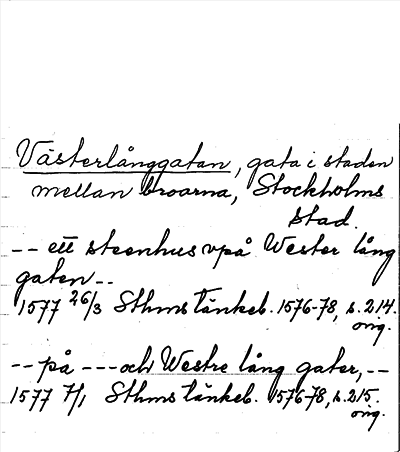 Västerlånggatan, gata i staden
mellan broarna, Stockholms
stad.
-- ett steenhus vpå Wester lång
gaten --
1577 26/3 Sthms Tänkeb. 1576-78, s. 214.
orig.
-- på --- och Westre lång gater, --
1577 7/1 Sthms tänkeb. 1576-78, s. 215.
orig.